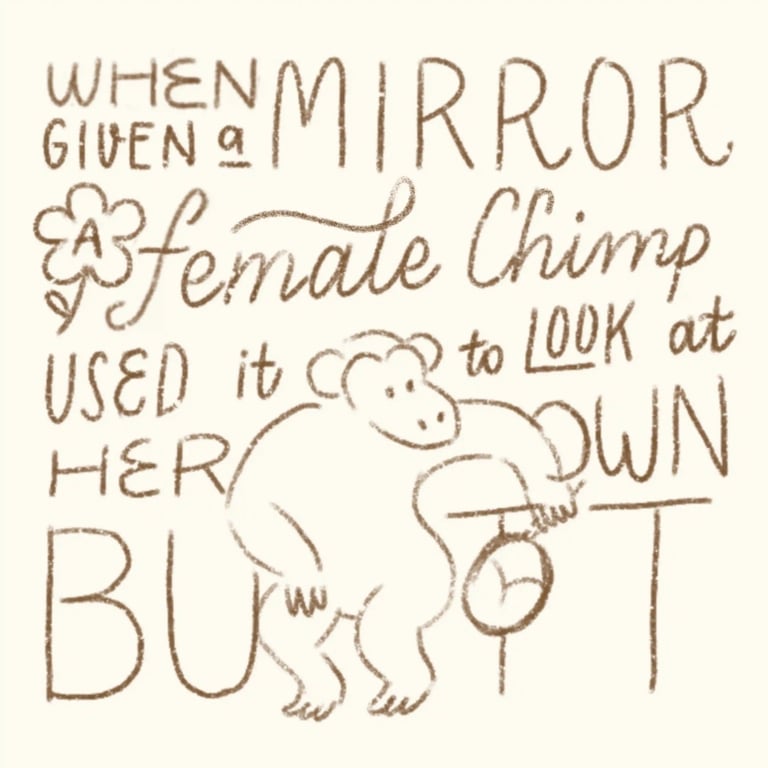 WHEN
GIVEN a MIRROR
A female Chimp
USED it to LOOK at
HER OWN
BUTT